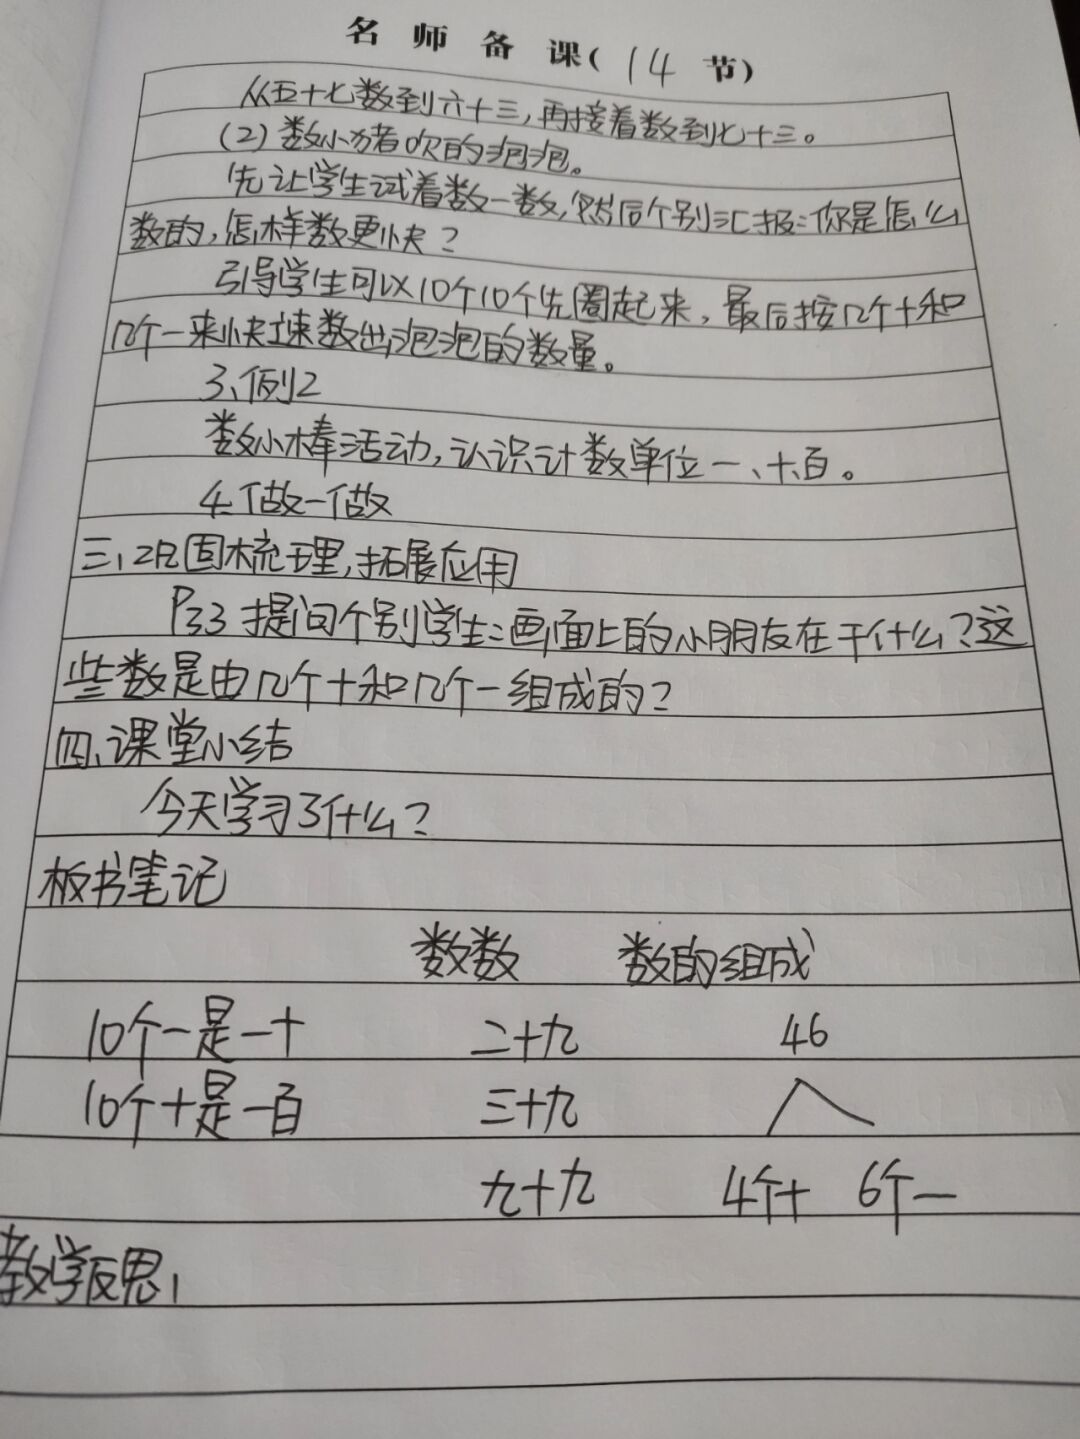 名师备课(14节)
从五十七数到六十三,再接着数到七十三。
(2)数小猪吹的泡泡。
先让学生试着数一数,然后个别汇报:你是怎么
数的,怎样数更快?
引导学生可以10个10个先圈起来,最后按几个十和
几个一来快速数出泡泡的数量。
3、例2
数小棒活动,认识计数单位一、十、百。
4.做一做
三、巩固梳理,拓展应用
P33提问个别学生:画面上的小朋友在干什么?这
些数是由几个十和几个一组成的?
四、课堂小结
今天学习了什么?
板书笔记
数数 数的组成
10个一是一十 二十九 46
10个十是一百 三十九
九十九 4个十 6个一
教学反思: